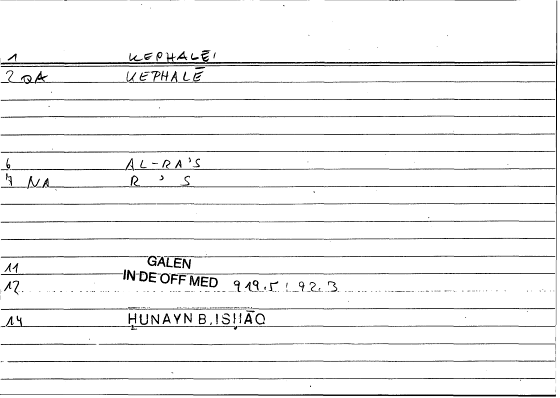 1 KEPHALĒ
2 QA KEPHALĒ
6 AL-RA'S
7 NA R ' S
11 GALEN
12 IN DE OFF MED 919.5 / 92.3
14 ḤUNAYN B. ISḤĀQ